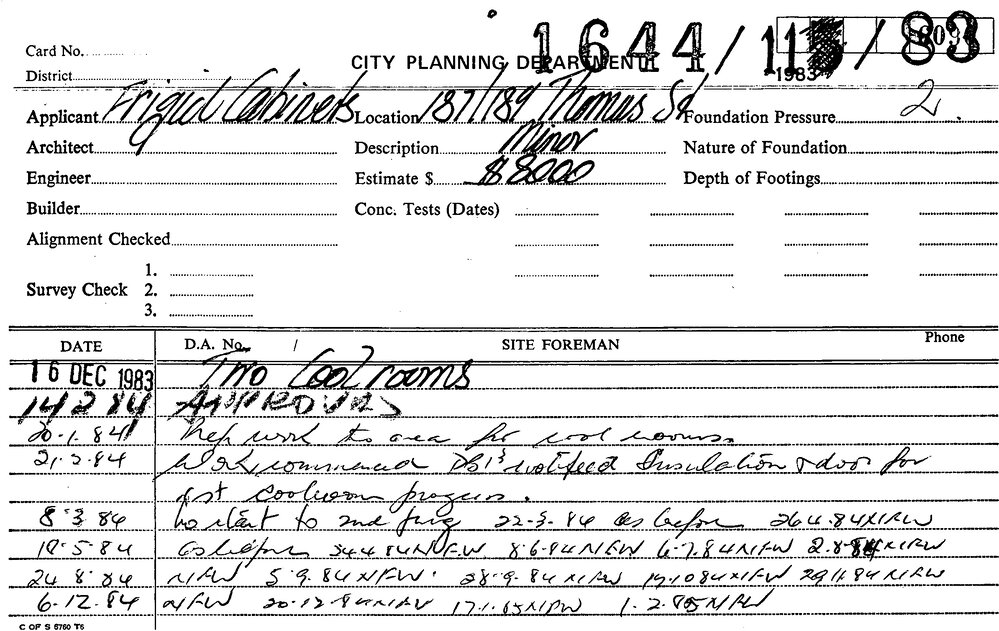 1644/11 /83
Card No.
CITY PLANNING DEPARTMENT
1983
District
Applicant Frigid Cabinets Location 187/189 Thomas St Foundation Pressure 2.
Architect Description Minor Nature of Foundation
Engineer Estimate $ $8000 Depth of Footings
Builder Conc. Tests (Dates)
Alignment Checked
1.
Survey Check 2.
3.
DATE D.A. No. / SITE FOREMAN Phone
16 DEC 1983 Two Cool rooms
14 2 84 APPROVES
20.1.84 Prep work to area for cool rooms.
21.2.84 Work commenced notified Insulation & door for
1st coolroom progress.
8.3.84 No start to 2nd frig 22.3.84 as before 26.4.84 NFW
10.5.84 as before 24.4.84 NFW 8.6.84 NFW 6.7.84 NFW 2.8.84 NFW
24.8.84 NFW 5.9.84 NFW. 28.9.84 NFW 19.10.84 NFW 29.11.84 NFW
6.12.84 NFW 20.12.84 NFW 17.1.85 NFW 1.2.85 NFW
C OF S 5760 T6